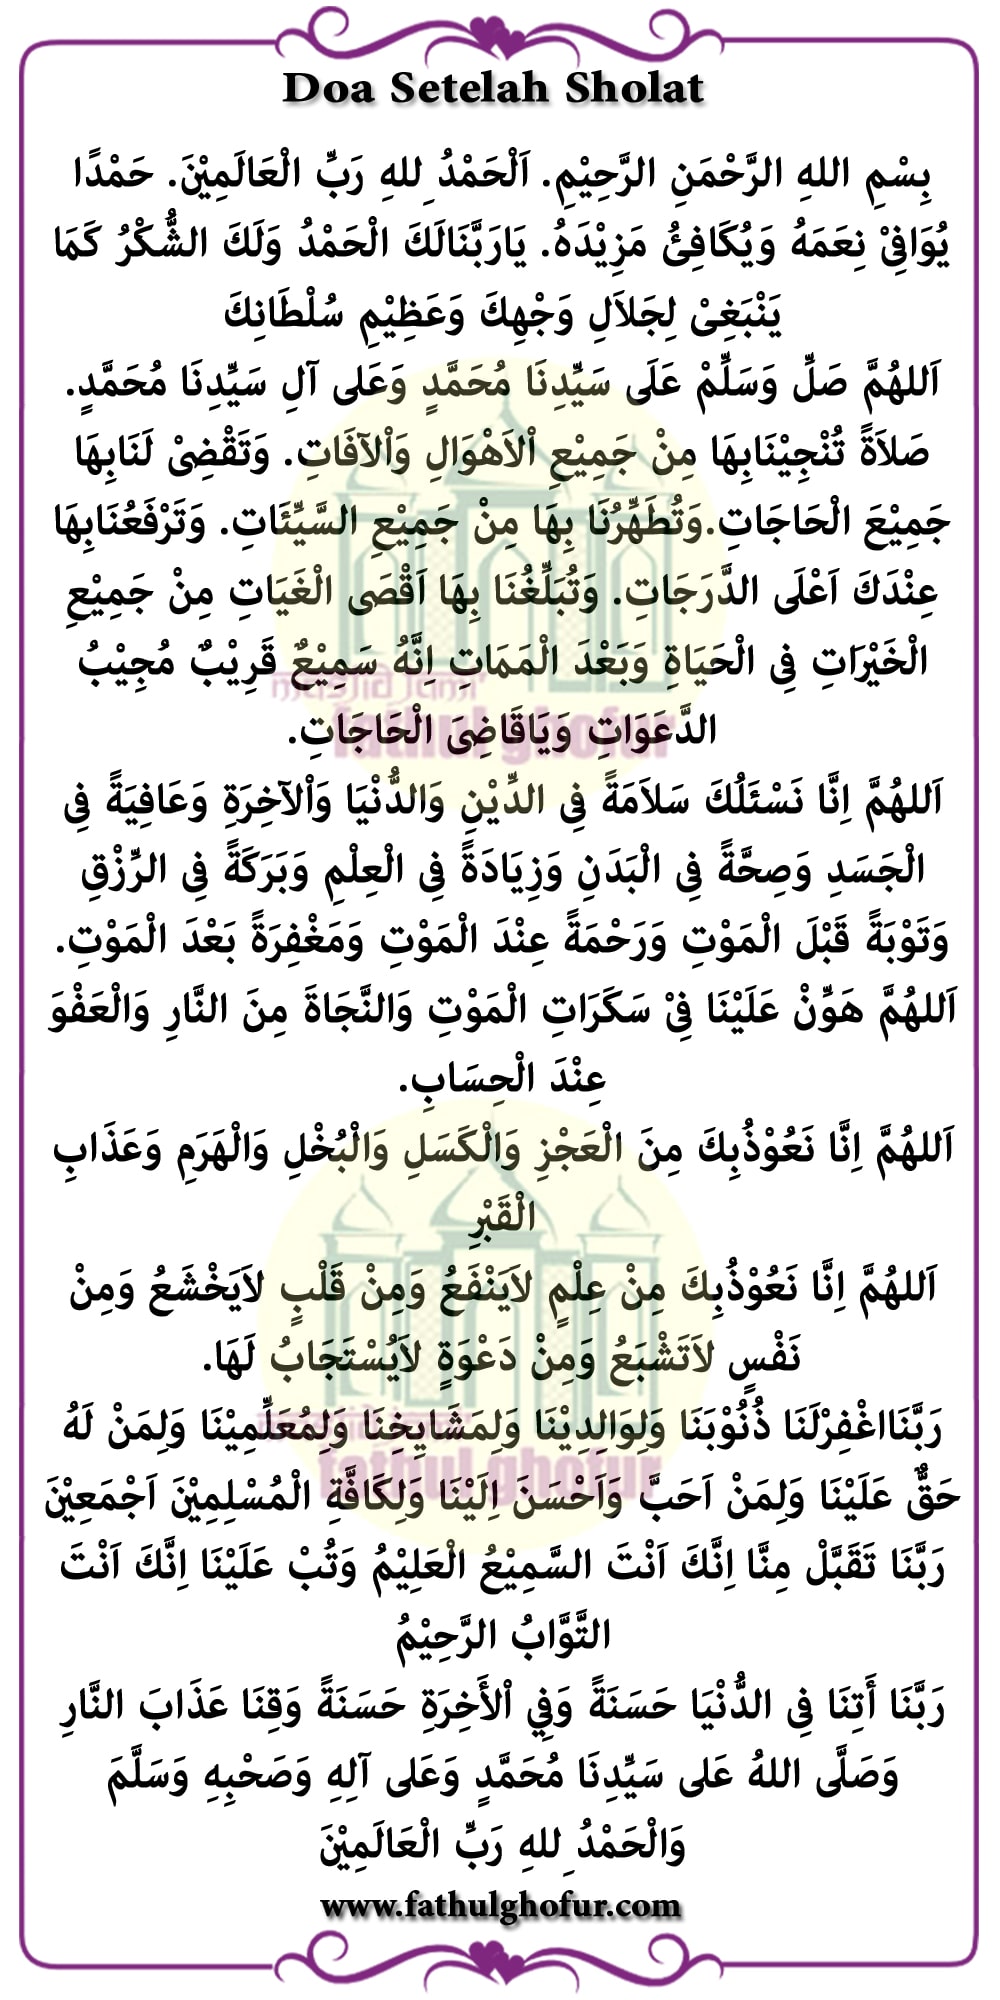 Doa Setelah Sholat
بِسْمِ اللهِ الرَّحْمَنِ الرَّحِيْمِ. اَلْحَمْدُ لِلهِ رَبِّ الْعَالَمِيْنَ. حَمْدًا
يُوَافِيْ نِعَمَهُ وَيُكَافِئُ مَزِيْدَهُ. يَارَبَّنَالَكَ الْحَمْدُ وَلَكَ الشُّكْرُ كَمَا
يَنْبَغِيْ لِجَلاَلِ وَجْهِكَ وَعَظِيْمِ سُلْطَانِكَ
اَللهُمَّ صَلِّ وَسَلِّمْ عَلَى سَيِّدِنَا مُحَمَّدٍ وَعَلى آلِ سَيِّدِنَا مُحَمَّدٍ.
صَلاَةً تُنْجِيْنَابِهَا مِنْ جَمِيْعِ اْلاَهْوَالِ وَاْلآفَاتِ. وَتَقْضِىْ لَنَابِهَا
جَمِيْعَ الْحَاجَاتِ.وَتُطَهِّرُنَا بِهَا مِنْ جَمِيْعِ السَّيِّئَاتِ. وَتَرْفَعُنَابِهَا
عِنْدَكَ اَعْلَى الدَّرَجَاتِ. وَتُبَلِّغُنَا بِهَا اَقْصَى الْغَيَاتِ مِنْ جَمِيْعِ
الْخَيْرَاتِ فِى الْحَيَاةِ وَبَعْدَ الْمَمَاتِ اِنَّهُ سَمِيْعٌ قَرِيْبٌ مُجِيْبُ
الدَّعَوَاتِ وَيَاقَاضِىَ الْحَاجَاتِ.
اَللهُمَّ اِنَّا نَسْئَلُكَ سَلاَمَةً فِى الدِّيْنِ وَالدُّنْيَا وَاْلآخِرَةِ وَعَافِيَةً فِى
الْجَسَدِ وَصِحَّةً فِى الْبَدَنِ وَزِيَادَةً فِى الْعِلْمِ وَبَرَكَةً فِى الرِّزْقِ
وَتَوْبَةً قَبْلَ الْمَوْتِ وَرَحْمَةً عِنْدَ الْمَوْتِ وَمَغْفِرَةً بَعْدَ الْمَوْتِ.
اَللهُمَّ هَوِّنْ عَلَيْنَا فِىْ سَكَرَاتِ الْمَوْتِ وَالنَّجَاةَ مِنَ النَّارِ وَالْعَفْوَ
عِنْدَ الْحِسَابِ.
اَللهُمَّ اِنَّا نَعُوْذُبِكَ مِنَ الْعَجْزِ وَالْكَسَلِ وَالْبُخْلِ وَالْهَرَمِ وَعَذَابِ
الْقَبْرِ
اَللهُمَّ اِنَّا نَعُوْذُبِكَ مِنْ عِلْمٍ لاَيَنْفَعُ وَمِنْ قَلْبٍ لاَيَخْشَعُ وَمِنْ
نَفْسٍ لاَتَشْبَعُ وَمِنْ دَعْوَةٍ لاَيُسْتَجَابُ لَهَا.
رَبَّنَااغْفِرْلَنَا ذُنُوْبَنَا وَلِوَالِدِيْنَا وَلِمَشَايِخِنَا وَلِمُعَلِّمِيْنَا وَلِمَنْ لَهُ
حَقٌّ عَلَيْنَا وَلِمَنْ اَحَبَّ وَاَحْسَنَ اِلَيْنَا وَلِكَافَّةِ الْمُسْلِمِيْنَ اَجْمَعِيْنَ
رَبَّنَا تَقَبَّلْ مِنَّا اِنَّكَ اَنْتَ السَّمِيْعُ الْعَلِيْمُ وَتُبْ عَلَيْنَا اِنَّكَ اَنْتَ
التَّوَّابُ الرَّحِيْمُ
رَبَّنَا أَتِنَا فِى الدُّنْيَا حَسَنَةً وَفِي اْلأَخِرَةِ حَسَنَةً وَقِنَا عَذَابَ النَّارِ
وَصَلَّى اللهُ عَلى سَيِّدِنَا مُحَمَّدٍ وَعَلى آلِهِ وَصَحْبِهِ وَسَلَّمَ
وَالْحَمْدُ لِلهِ رَبِّ الْعَالَمِيْنَ
www.fathulghofur.com
masjid jami'
fathul ghofur
masjid jami'
fathul ghofur